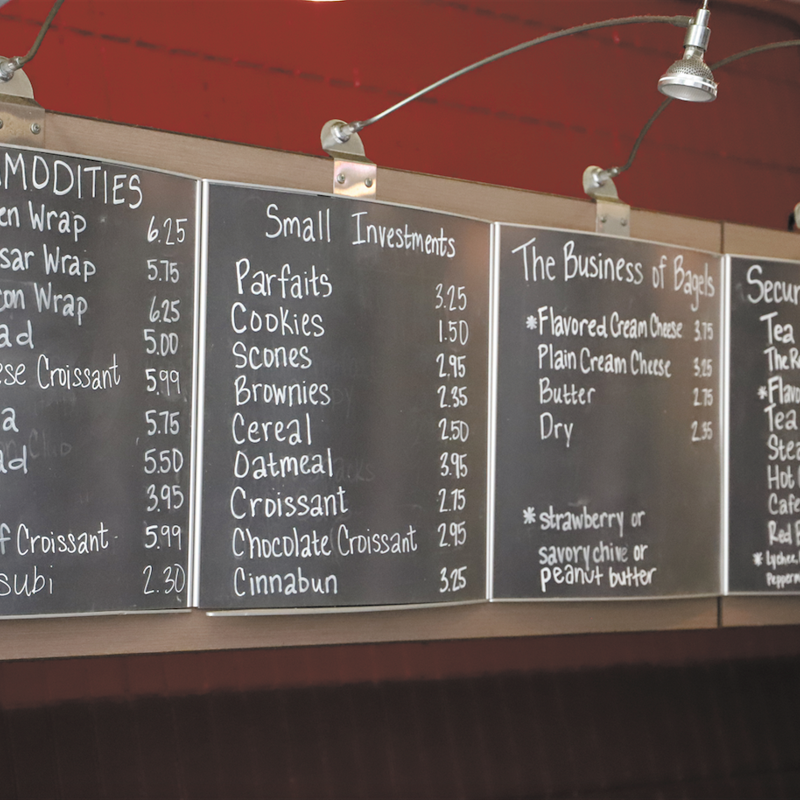 MODITIES
en Wrap 6.25
sar Wrap 5.75
con Wrap 6.25
ad 5.00
ese Croissant 5.99
a 5.75
ad 5.50
3.95
f Croissant 5.99
subi 2.30
Small Investments
Parfaits 3.25
Cookies 1.50
Scones 2.95
Brownies 2.35
Cereal 2.50
Oatmeal 3.95
Croissant 2.75
Chocolate Croissant 2.95
Cinnabun 3.25
The Business of Bagels
*Flavored Cream Cheese 3.75
Plain Cream Cheese 3.25
Butter 2.75
Dry 2.35
*strawberry or
savory chive or
peanut butter
Secur
Tea
The R
*Flavo
Tea
Stea
Hot
Cafe
Red B
*Lychee,
Pepperm